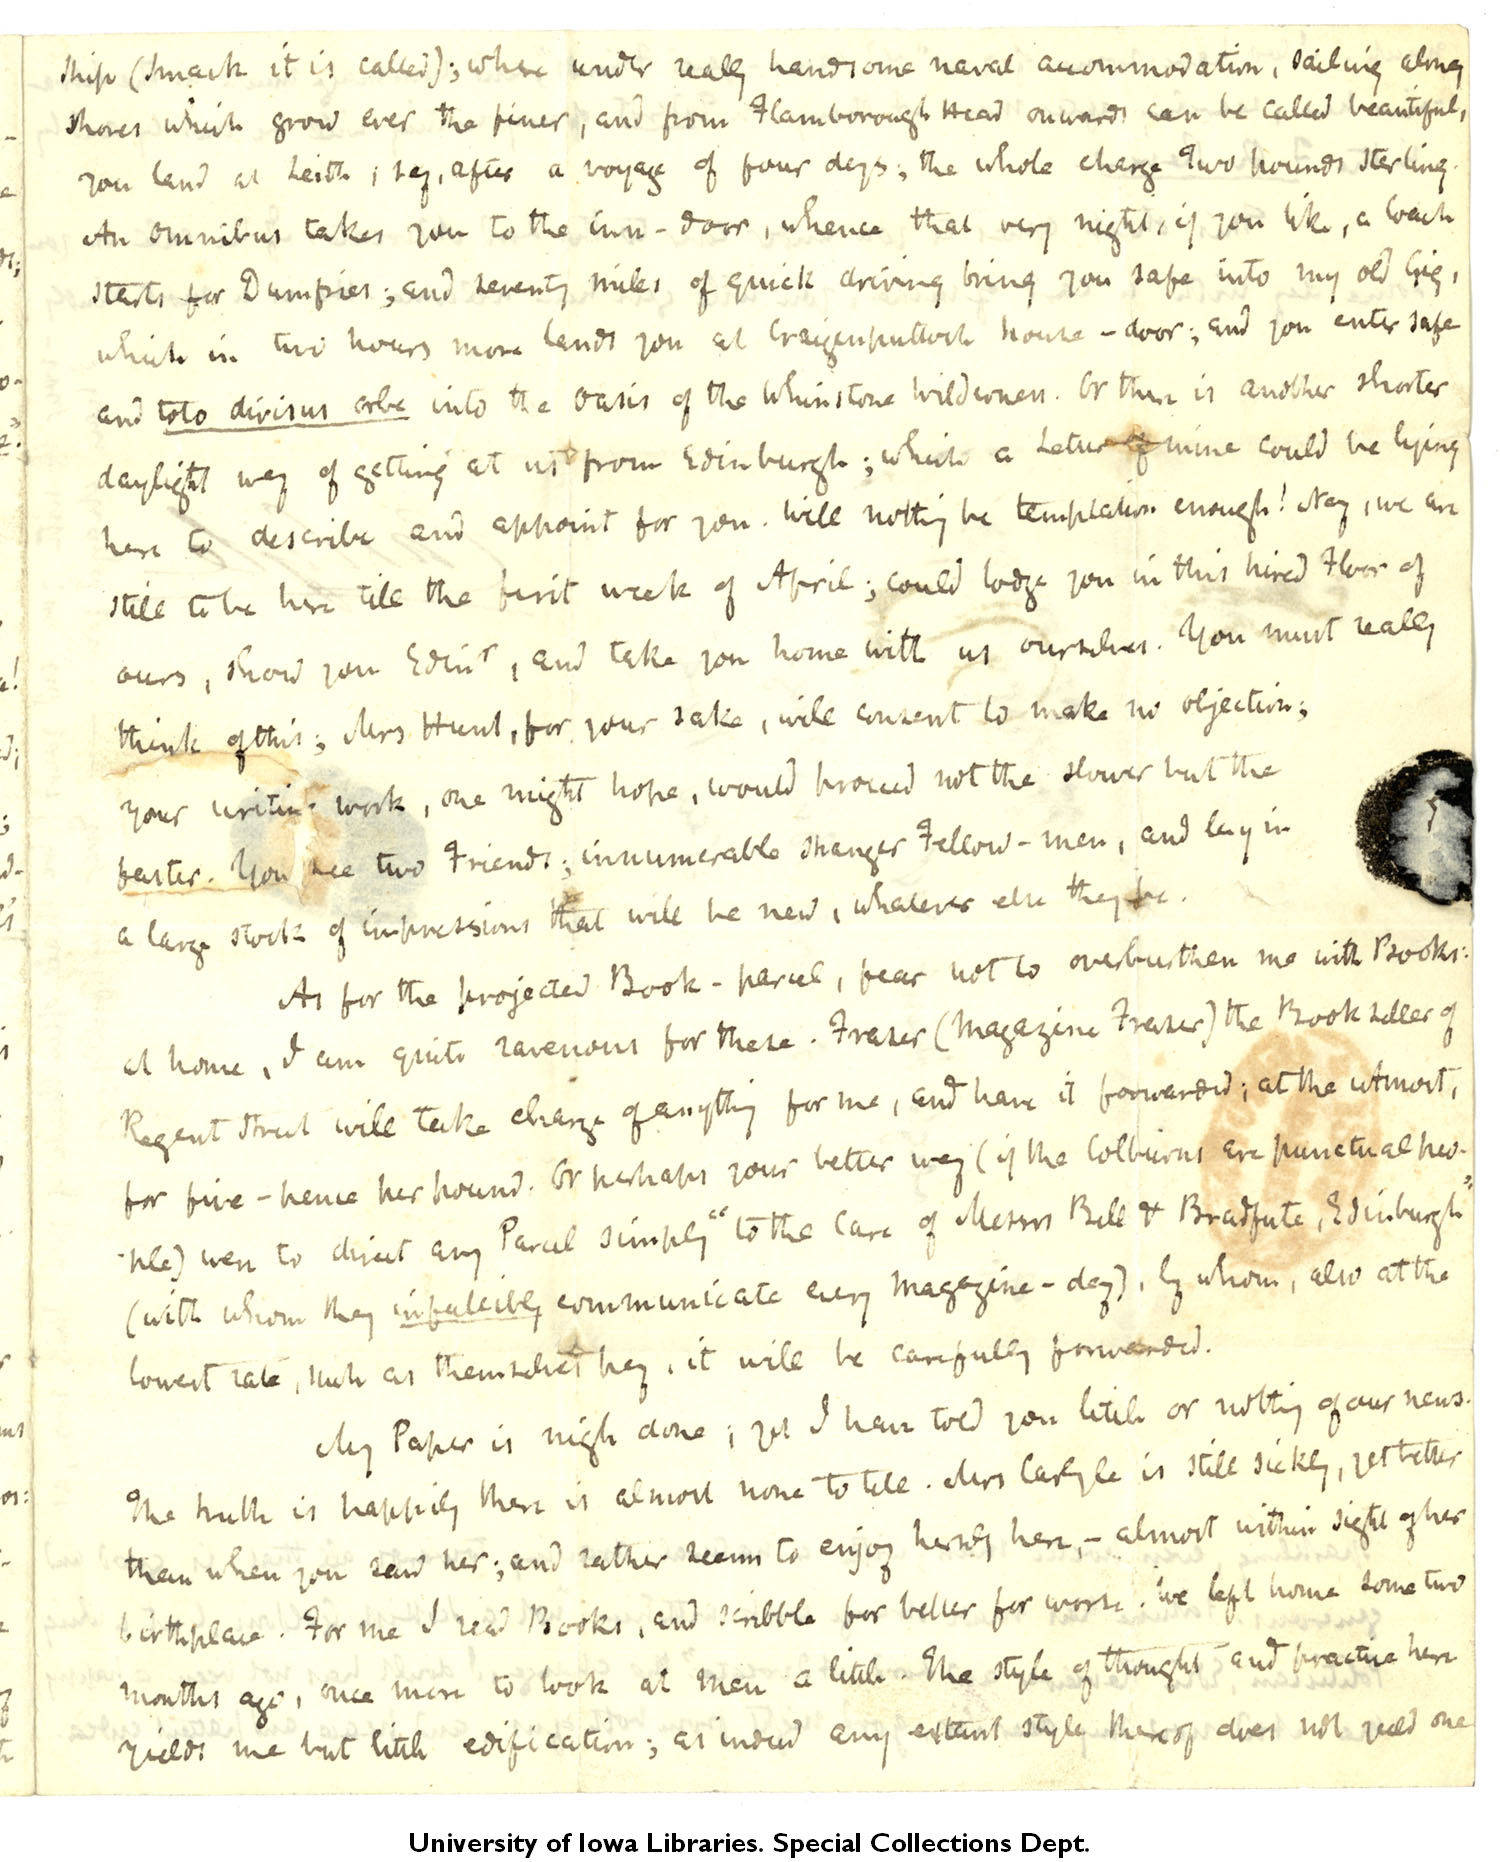 ship (smack it is called); where under really handsome naval accommodation, sailing along
shores which grow ever the finer, and from Flamborough Head onwards can be called beautiful,
you land at Leith, say, after a voyage of four days; the whole charge Two pounds sterling.
An omnibus takes you to the inn-door, whence that very night, if you like, a Coach
starts for Dumfries; and seventy miles of quick driving bring you safe into my old Gig,
which in two hours more lands you at Craigenputtoch house-door; and you enter safe
and toto divisus orbe into the Oasis of the Whinstone Wilderness. Or there is another shorter
daylight way of getting at us from Edinburgh; which a Letter of mine could be lying
here to describe and appoint for you. Will nothing be temptation enough! Nay, we are
still to be here till the first week of April; could lodge you in this hired Floor of
ours, show you Edinr, and take you home with us ourselves. You must really
think of this; Mrs Hunt, for your sake, will consent to make no objection;
your writing work, one might hope, would proceed not the slower but the
faster. You see two Friends; innumerable stranger Fellow-men, and lay in
a large stock of impressions that will be new, whatever else they be.
As for the projected Book-parcel, fear not to overburthen me with Books:
at home, I am quite ravenous for these. Fraser (Magazine Fraser) the Bookseller of
Regent Street will take charge of anything for me, and have it forwarded; at the utmost,
for five-pence per pound. Or perhaps your better way (if the Colburns are punctual peo-
ple) were to direct any Parcel simply "to the Care of Messrs Bell & Bradfute, Edinburgh"
(with whom they infallibly communicate every Magazine-day), by whom, also at the
lowest rate, such as themselves pay, it will be carefully forwarded.
My Paper is nigh done; yet I have told you little or nothing of our news.
The truth is happily there is almost none to tell. Mrs Carlyle is still sickly, yet better
than when you saw her; and rather seems to enjoy herself here,—almost within sight of her
birthplace. For me I read Books, and scribble for better for worse. We left home some two
months ago, once more to look at Men a little. The style of thought and practice here
yields me but little edification; as indeed any extant style thereof does not yield one
University of Iowa Libraries. Special Collections Dept.